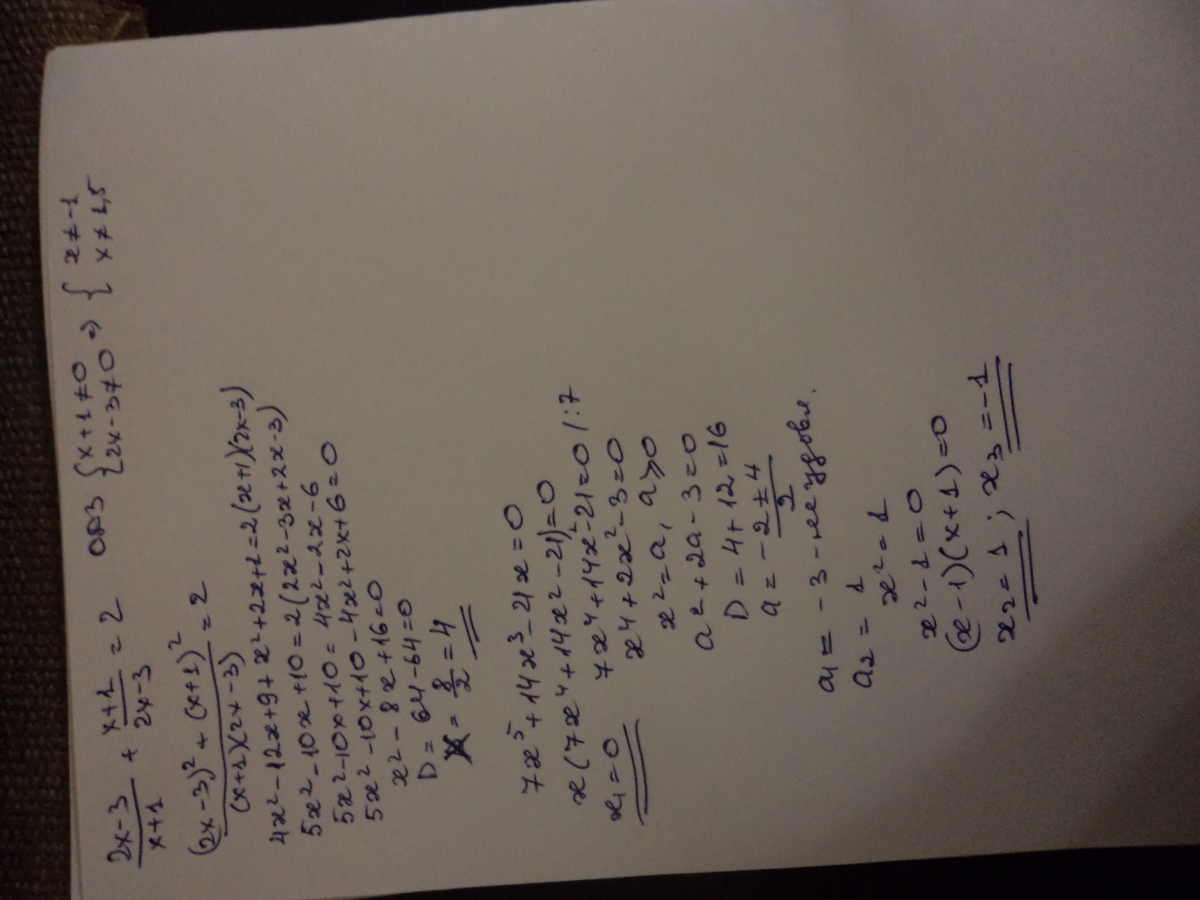 (2x-3)/(x+1) + (x+1)/(2x-3) = 2   ОДЗ { x+1≠0 ; 2x-3≠0 => { x≠-1 ; x≠1,5
((2x-3)² + (x+1)²)/((x+1)(2x-3)) = 2
4x²-12x+9+x²+2x+1=2(x+1)(2x-3)
5x²-10x+10=2(2x²-3x+2x-3)
5x²-10x+10=4x²-2x-6
5x²-10x+10-4x²+2x+6=0
x²-8x+16=0
D=64-64=0
x=8/2=4
7x⁵+14x³-21x=0
x(7x⁴+14x²-21)=0
x₁=0   7x⁴+14x²-21=0 /:7
x⁴+2x²-3=0
x²=a, a≥0
a²+2a-3=0
D=4+12=16
a=(-2±4)/2
a₁=-3-не удовл.
a₂=1
x²=1
x²-1=0
(x-1)(x+1)=0
x₂=1; x₃=-1